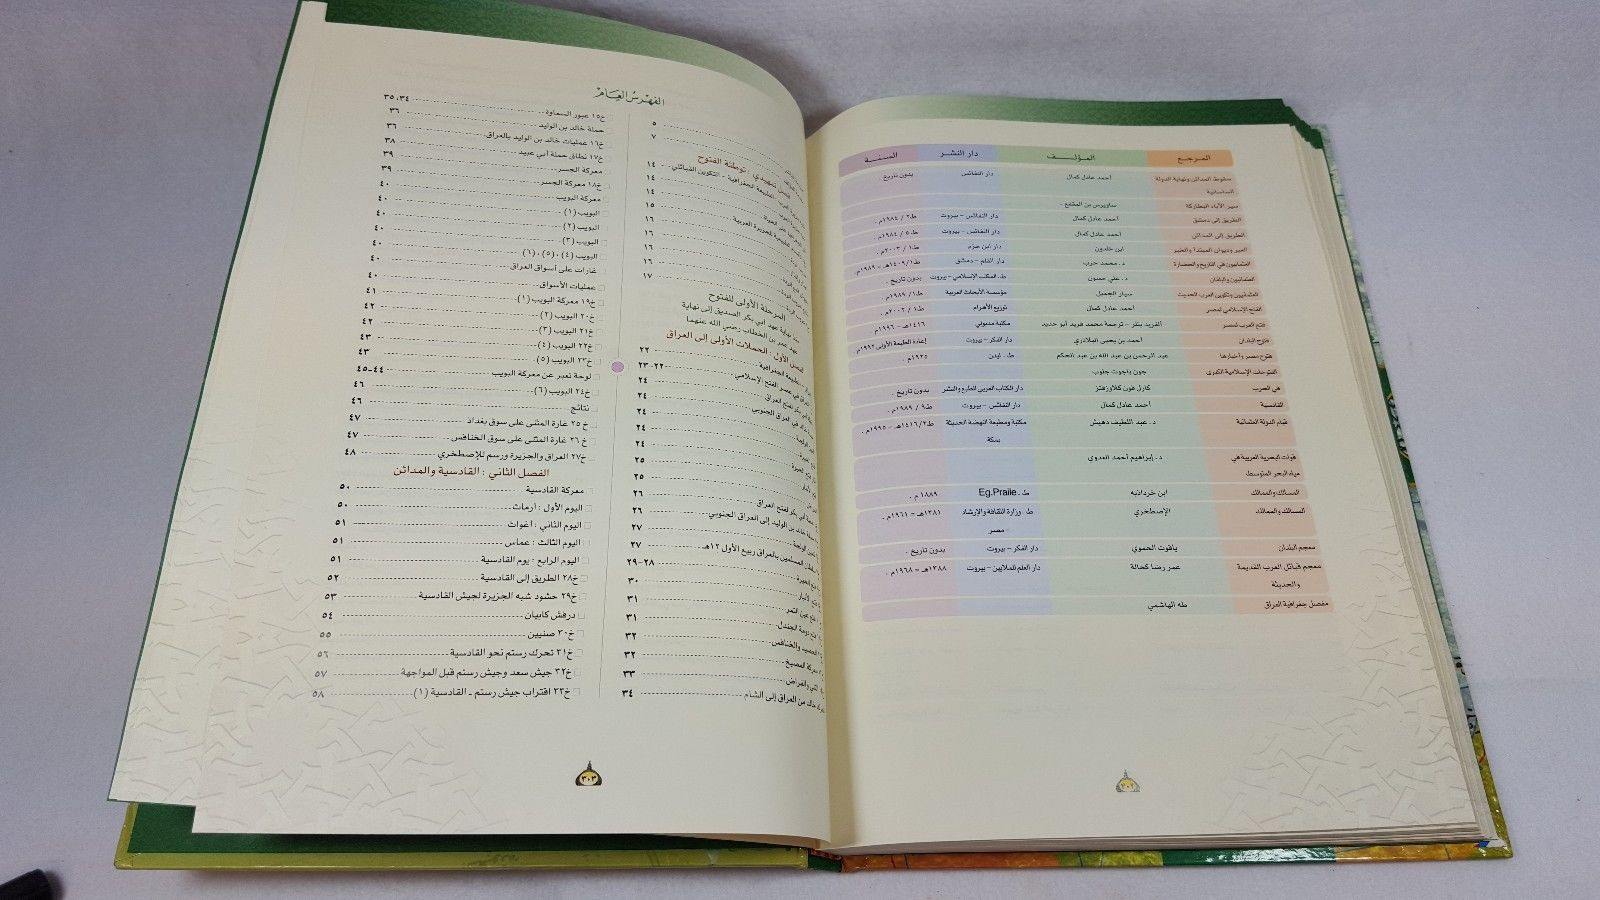 المرجع المؤلف دار النشر السنة
سقوط المدائن ونهاية الدولة أحمد عادل كمال دار النفائس بدون تاريخ
الساسانية
سير الآباء البطاركة ساويرس بن المقفع .
الطريق إلى دمشق أحمد عادل كمال دار النفائس – بيروت ط٢ / ١٩٨٤م .
الطريق إلى المدائن أحمد عادل كمال دار النفائس – بيروت ط٥ / ١٩٨٤م .
العبر وديوان المبتدأ والخبر ابن خلدون دار ابن حزم ط١ / ٢٠٠٣م .
العثمانيون في التاريخ والحضارة د. محمد حرب دار القلم – دمشق ط١/١٤٠٩هـ – ١٩٨٩م .
العثمانيون والبلقان د. علي حسون ط. المكتب الإسلامي – بيروت بدون تاريخ .
العثمانيون وتكوين العرب الحديث سيار الجميل مؤسسة الأبحاث العربية ط١ / ١٩٨٩م .
الفتح الإسلامي لمصر أحمد عادل كمال توزيع الأهرام ط١ / ٢٠٠٢م .
فتح العرب لمصر ألفريد بتلر – ترجمة محمد فريد أبو حديد مكتبة مدبولي ١٤١٦هـ – ١٩٩٦م
فتوح البلدان أحمد بن يحيى البلاذري دار الفكر – بيروت إعادة الطبعة الأولى ١٩٩٢م
فتوح مصر وأخبارها عبد الرحمن بن عبد الله بن عبد الحكم ط . ليدن ١٩٢٥م .
الفتوحات الإسلامية الكبرى جون باجوت جلوب
في الحرب كارل فون كلاوزفتز دار الكتاب العربي للطبع والنشر بدون تاريخ .
القادسية أحمد عادل كمال دار النفائس – بيروت ط٩ / ١٩٨٩م .
قيام الدولة العثمانية د. عبد اللطيف دهيش مكتبة ومطبعة النهضة الحديثة ط٢/١٤١٦هـ – ١٩٩٥م .
بمكة
قوات البحرية العربية في د. إبراهيم أحمد العدوي
مياه البحر المتوسط
المسالك والممالك ابن خرداذبه ط . Eg.Praile ١٨٨٩ م .
المسالك والممالك الإصطخري ط . وزارة الثقافة والإرشاد ١٣٨١هـ = ١٩٦١م .
– مصر
معجم البلدان ياقوت الحموي دار الفكر – بيروت بدون تاريخ .
معجم قبائل العرب القديمة عمر رضا كحالة دار العلم للملايين – بيروت ١٣٨٨هـ = ١٩٦٨م .
والحديثة
مفصل جغرافية العراق طه الهاشمي
الفهرس العام
٥
٧
تمهيدي : توطئة الفتوح
١٤
الطبيعة الجغرافية – التكوين القبائلي ١٤
١٤
١٥
للجزيرة العربية ١٦
١٦
١٦
١٦
١٧
المرحلة الأولى للفتوح
منذ نهاية عهد أبي بكر الصديق إلى نهاية
عهد عمر بن الخطاب رضي الله عنهما
الفصل الأول : الحملات الأولى إلى العراق
طبيعة الجغرافية ٢٢
في عصر الفتح الإسلامي ٢٢-٢٣
أبي بكر لفتح العراق ٢٤
في العراق الجنوبي ٢٤
٢٤
٢٤
٢٥
٢٥
أبي بكر لفتح العراق ٢٦
خالد بن الوليد إلى العراق الجنوبي ٢٦
٢٧
المسلمين بالعراق ربيع الأول ١٢هـ ٢٧
فتح الحيرة ٢٨-٢٩
الأنبار ٣٠
عين التمر ٣١
دومة الجندل ٣١
الحصيد والخنافس ٣٢
معركة المصيخ ٣٢
والفراض ٣٣
خالد من العراق إلى الشام ٣٤
خ١٥ عبور السماوة ٣٤، ٣٥
حملة خالد بن الوليد ٣٦
خ١٦ عمليات خالد بن الوليد بالعراق ٣٦
خ١٧ نطاق حملة أبي عبيد ٣٨
معركة الجسر ٣٩
خ١٨ معركة الجسر ٣٩
معركة البويب ٤٠
البويب (١) ٤٠
البويب (٢) ٤٠
البويب (٣) ٤٠
البويب (٤)، (٥)، (٦) ٤٠
غارات على أسواق العراق ٤٠
عمليات الأسواق ٤٠
خ١٩ معركة البويب (١) ٤١
خ٢٠ البويب (٢) ٤٢
خ٢١ البويب (٣) ٤٢
خ٢٢ البويب (٤) ٤٣
خ٢٣ البويب (٥) ٤٣
لوحة تعبر عن معركة البويب ٤٤-٤٥
خ٢٤ البويب (٦) ٤٦
نتائج ٤٦
خ ٢٥ غارة المثنى على سوق بغداد ٤٧
خ ٢٦ غارة المثنى على سوق الخنافس ٤٧
خ٢٧ العراق والجزيرة ورسم للإصطخري ٤٨
الفصل الثاني : القادسية والمدائن
معركة القادسية ٥٠
اليوم الأول : أرماث ٥٠
اليوم الثاني : أغواث ٥١
اليوم الثالث : عماس ٥١
اليوم الرابع : يوم القادسية ٥١
خ٢٨ الطريق إلى القادسية ٥٢
خ٢٩ حشود شبه الجزيرة لجيش القادسية ٥٣
درفش كابيان ٥٤
خ٣٠ صنيين ٥٥
خ٣١ تحرك رستم نحو القادسية ٥٦
خ٣٢ جيش سعد وجيش رستم قبل المواجهة ٥٧
خ٣٣ اقتراب جيش رستم ـ القادسية (١) ٥٨
٣٠٣